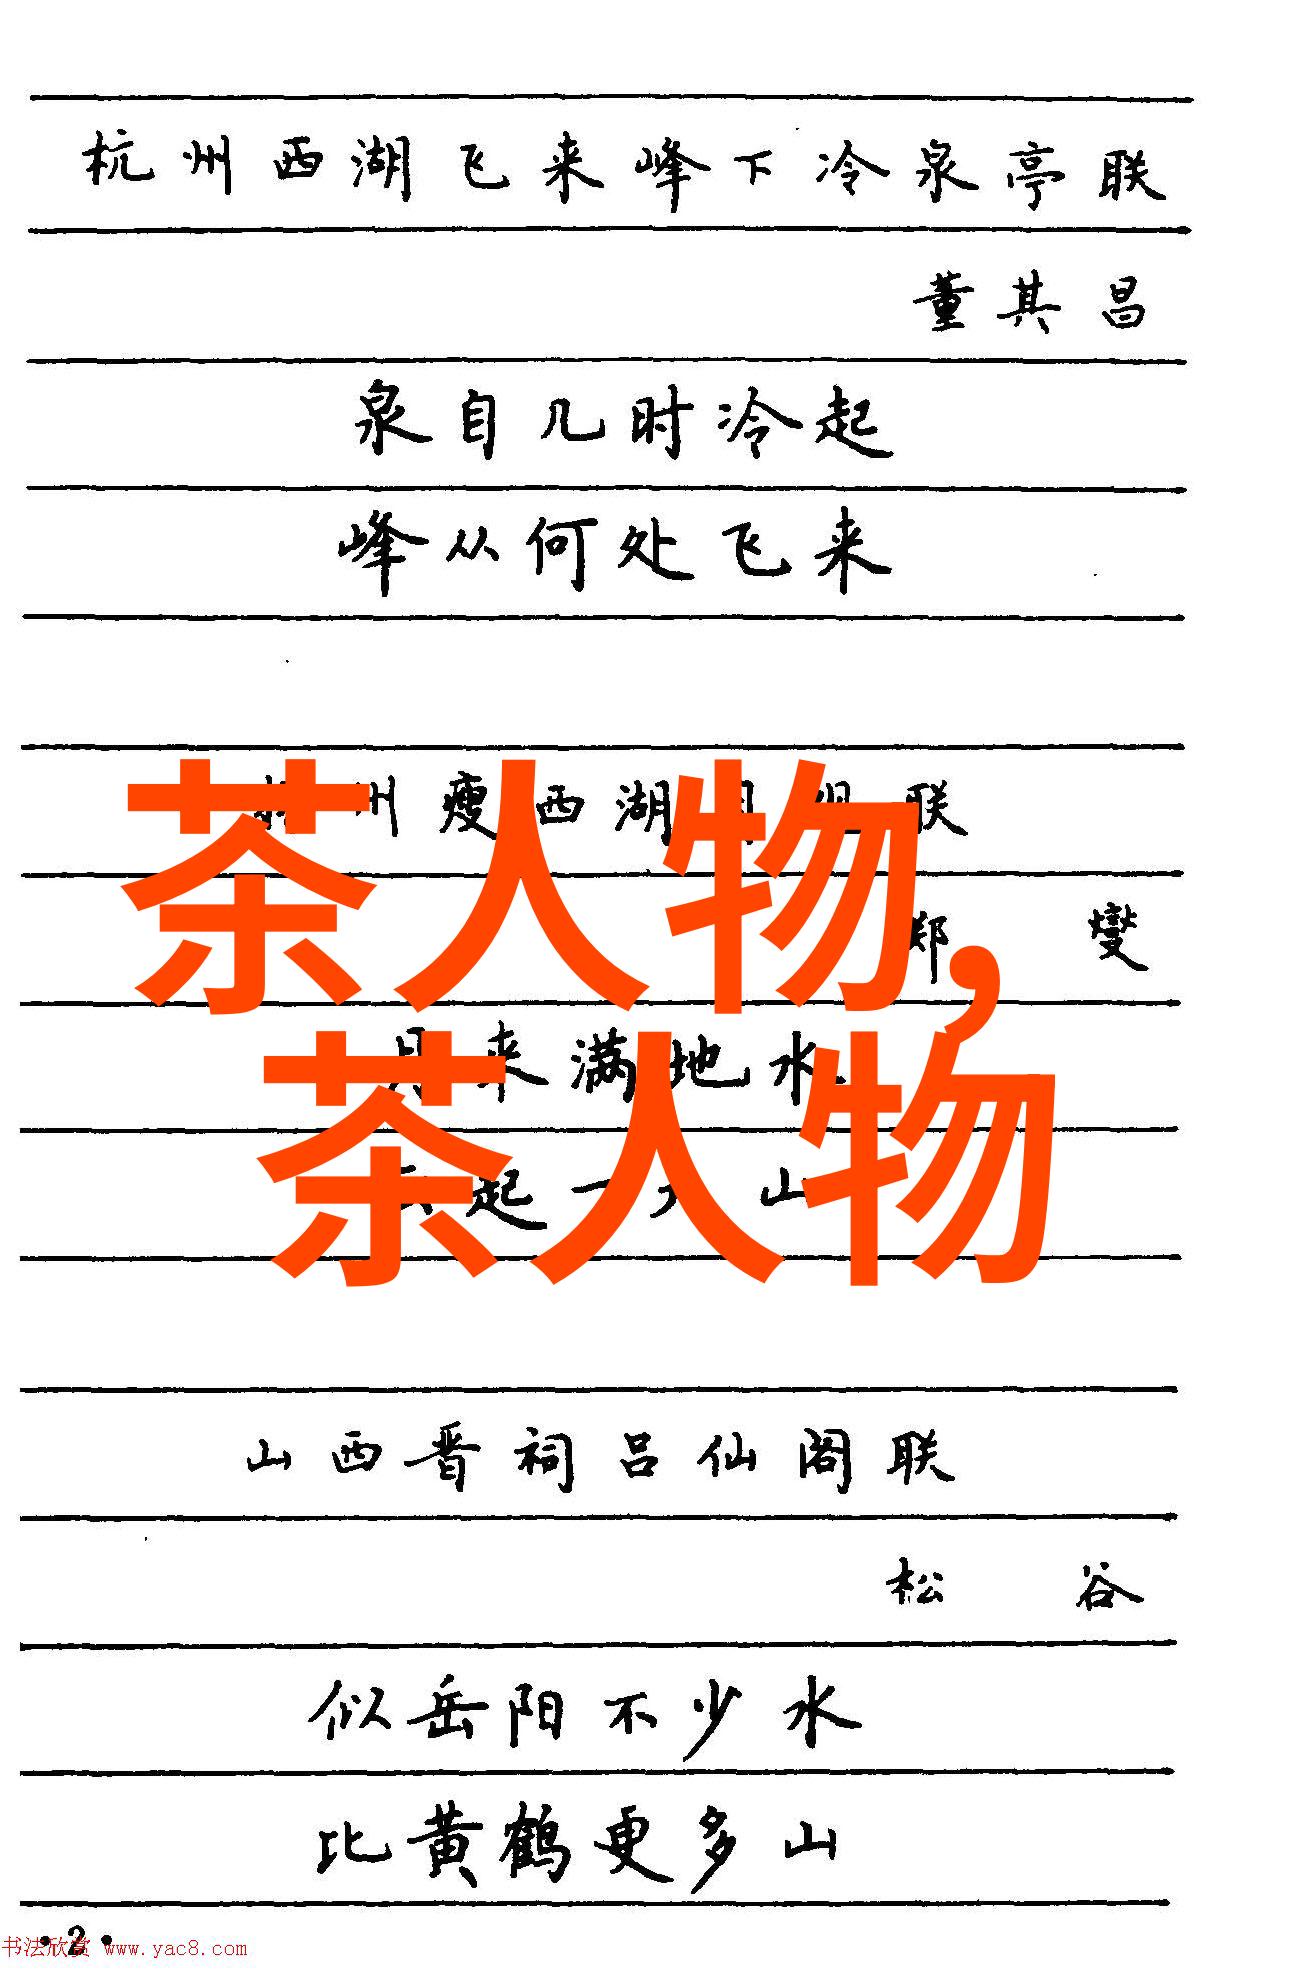 杭州西湖飞来峰下冷泉亭联
董其昌
泉自几时冷起
峰从何处飞来
州瘦西湖月观联
郑燮
月来满地水
云起一天山
茶人物,
茶人物
山西晋祠吕仙阁联
松谷
似岳阳不少水
比黄鹤更多山
·2·
书法欣赏 www.yac8.com